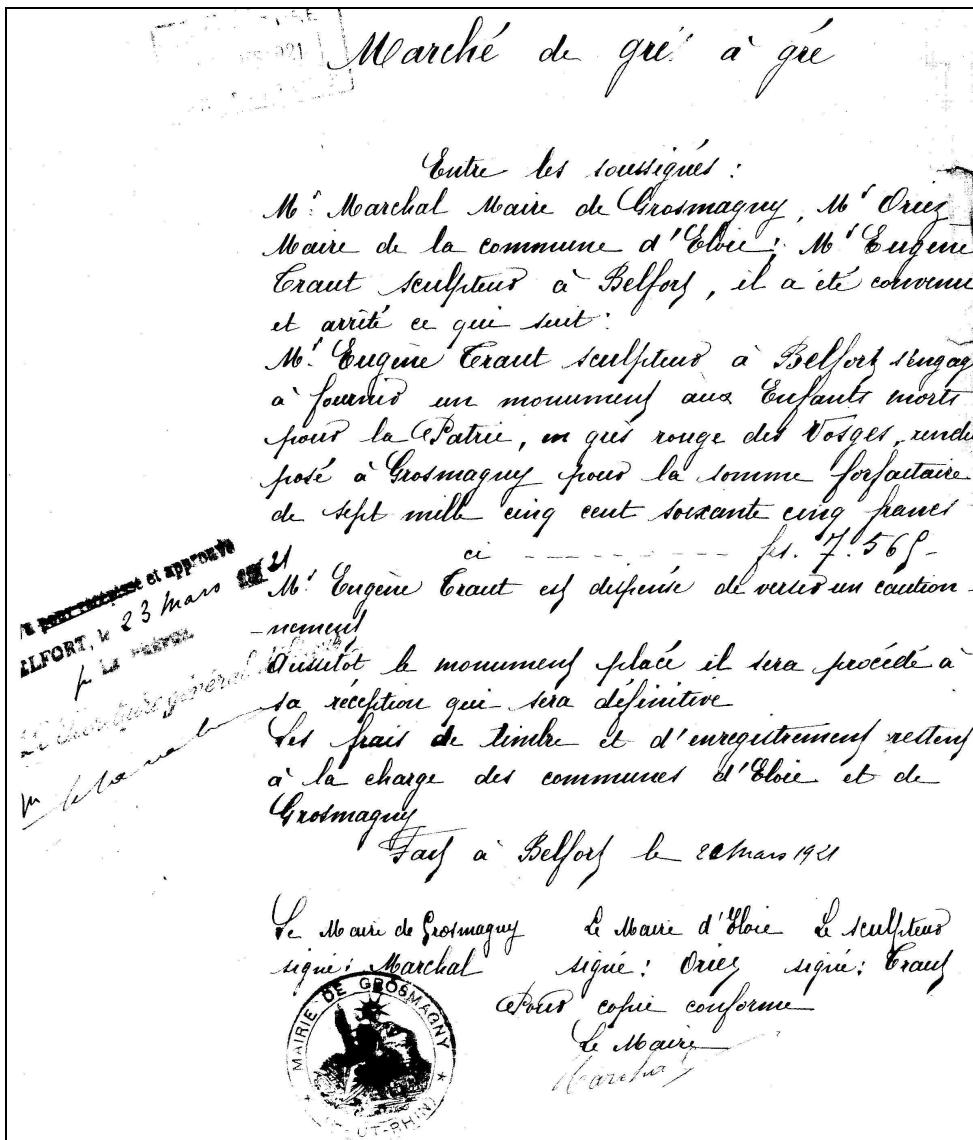 Marché de gré à gré
Entre les soussignés :
Mr Marchal Maire de Grosmagny, Mr Oriez
Maire de la commune d'Eloie ; Mr Eugène
Traut sculpteur à Belfort, il a été convenu
et arrêté ce qui suit :
Mr Eugène Traut sculpteur à Belfort s'engag
à fournir un monument aux Enfants morts
pour la Patrie, en grès rouge des Vosges, rendu
posé à Grosmagny pour la somme forfaitaire
de sept mille cinq cent soixante cinq francs
ci - - - - - - - - - frs. 7.565 -
Mr Eugène Traut est dispensé de verser un caution-
-nement
Aussitôt le monument placé il sera procédé à
sa réception qui sera définitive
Les frais de timbre et d'enregistrement restent
à la charge des communes d'Eloie et de
Grosmagny
Fait à Belfort le 20 Mars 1921
Le Maire de Grosmagny Le Maire d'Eloie Le sculpteur
signé : Marchal signé : Oriez signé : Traut
Pour copie conforme
Le Maire
Marchal
pour récépissé et approuvé
ELFORT, le 23 Mars 21
p. LE PRÉFET
Le Secrétaire général
MAIRIE DE GROSMAGNY
(HAUT-RHIN)